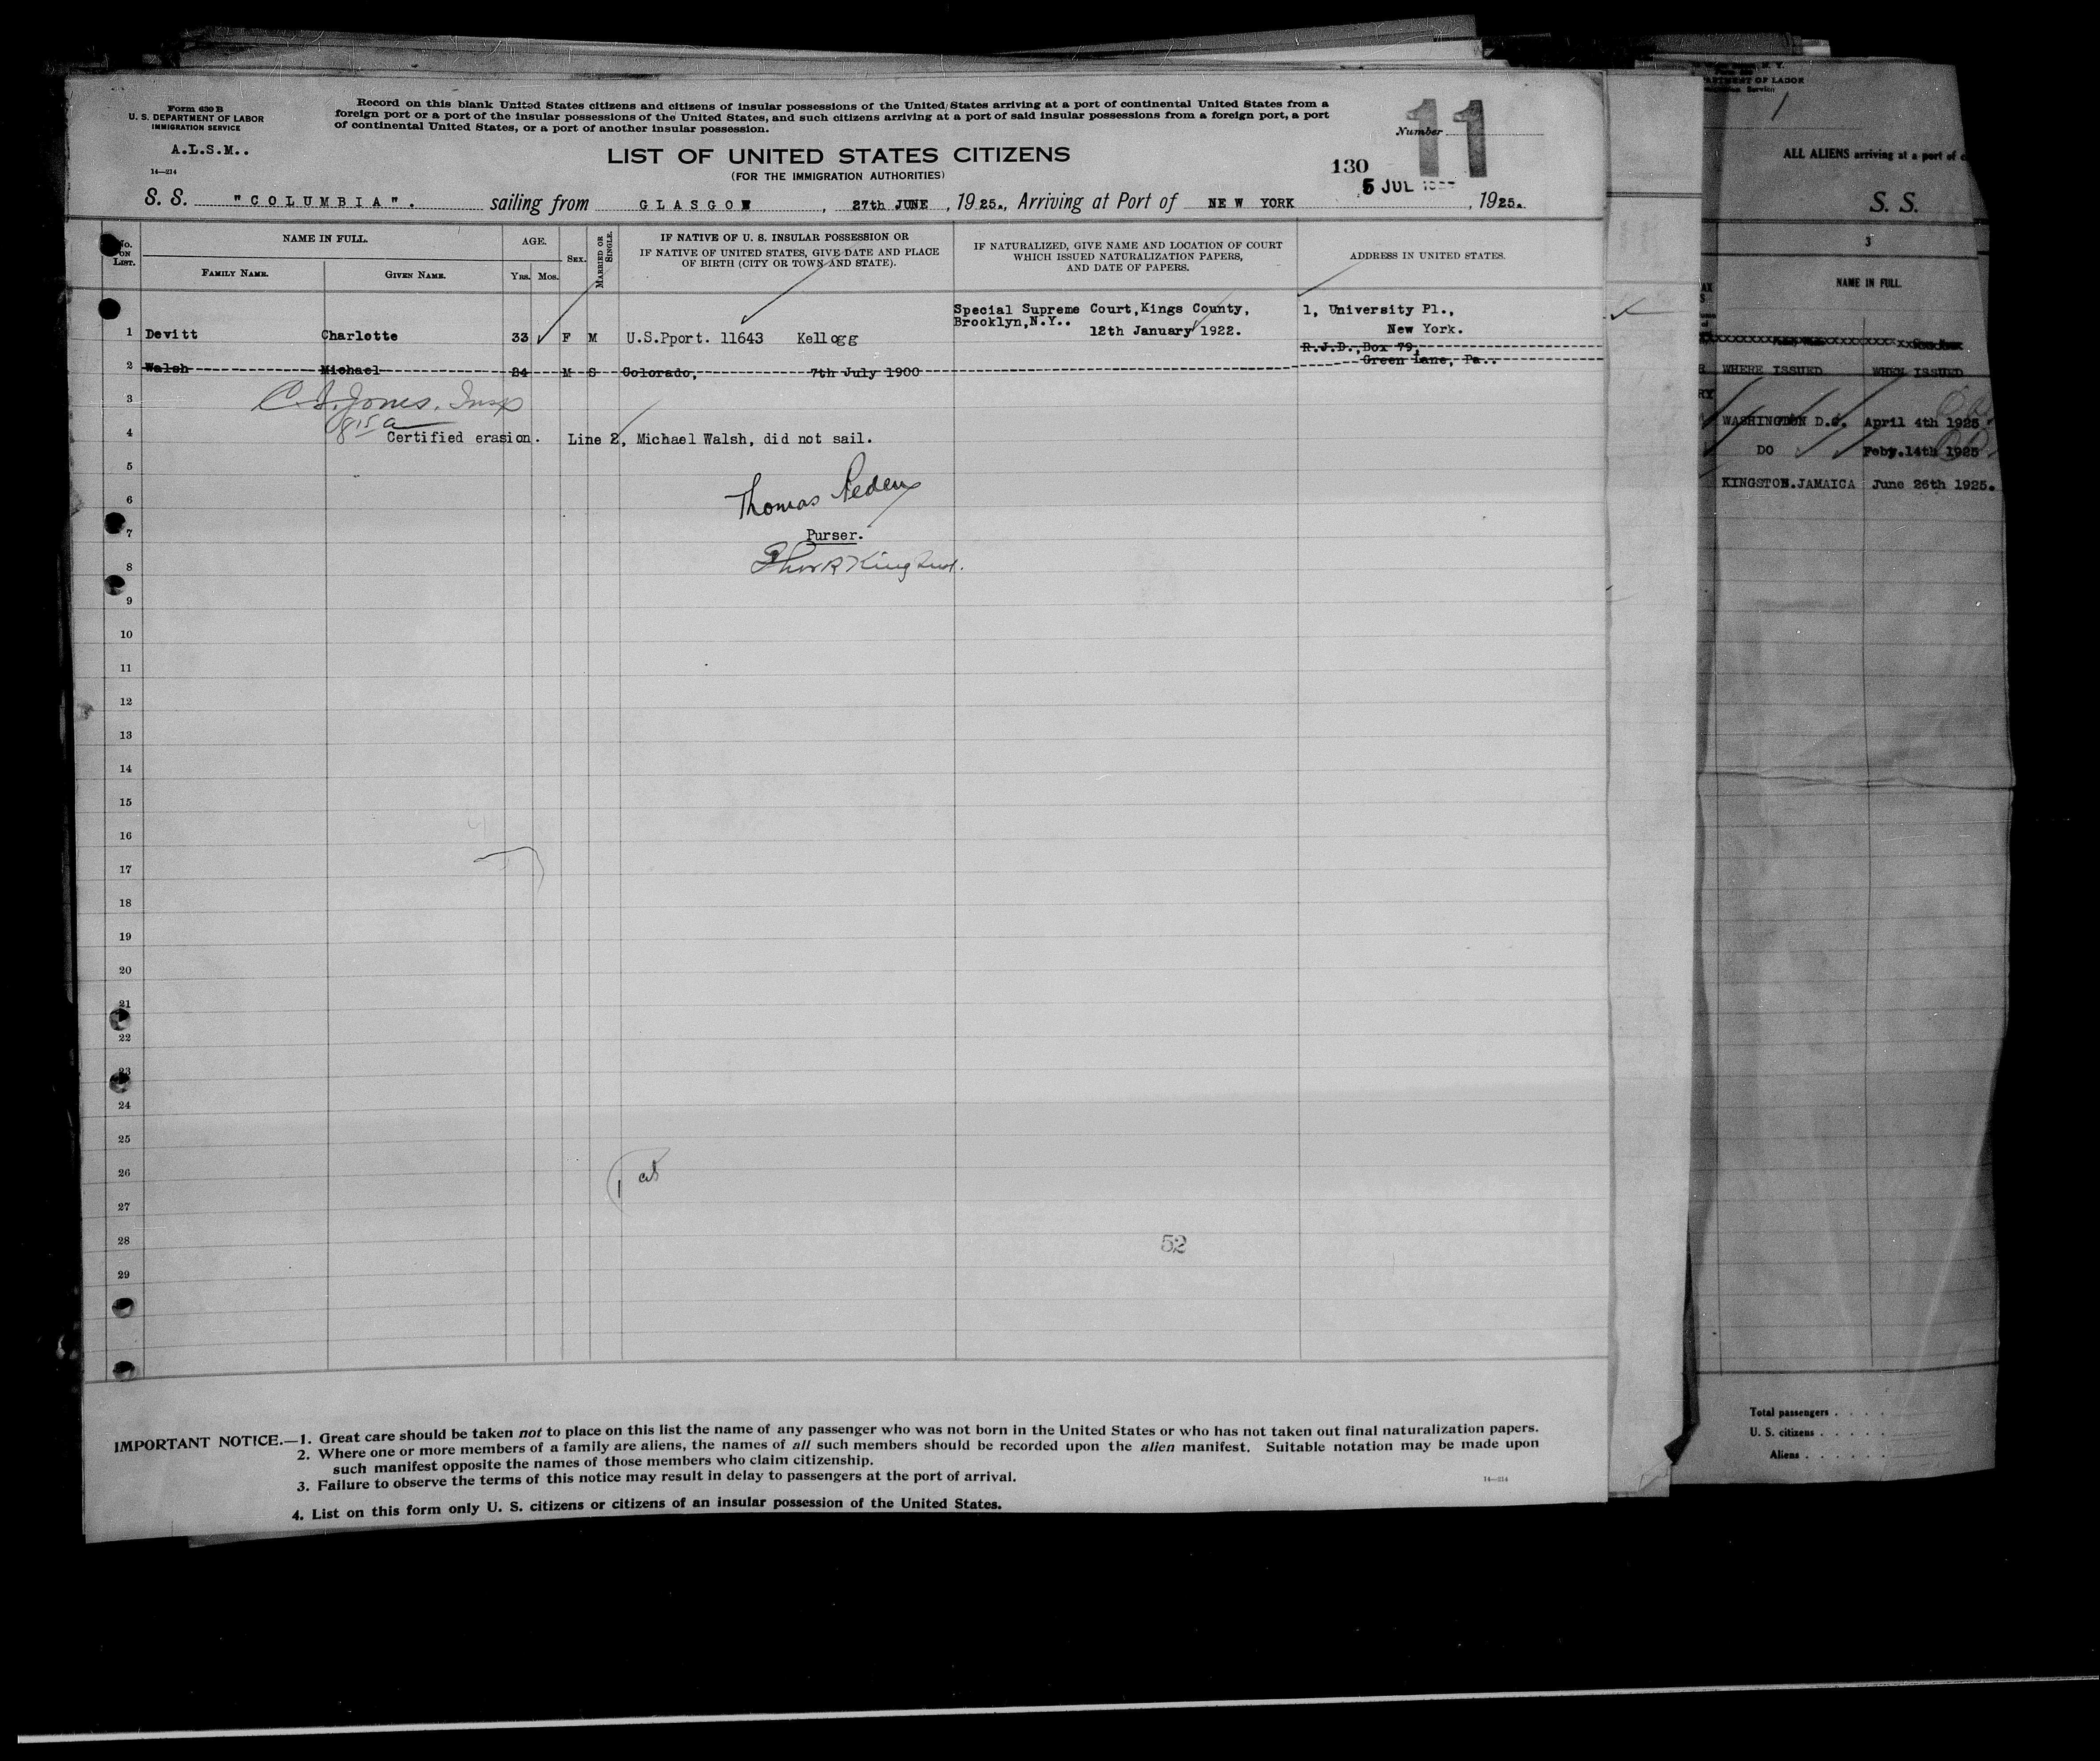 Form 630 B
U. S. DEPARTMENT OF LABOR
IMMIGRATION SERVICE
A.L.S.M..
14—214
Record on this blank United States citizens and citizens of insular possessions of the United States arriving at a port of continental United States from a
foreign port or a port of the insular possessions of the United States, and such citizens arriving at a port of said insular possessions from a foreign port, a port
of continental United States, or a port of another insular possession.
Number 11
LIST OF UNITED STATES CITIZENS
(FOR THE IMMIGRATION AUTHORITIES)
130
5 JUL
S. S. "COLUMBIA". sailing from GLASGOW, 27th JUNE, 1925., Arriving at Port of NEW YORK, 1925.
No. ON LIST.
NAME IN FULL.
FAMILY NAME.
GIVEN NAME.
AGE.
YRS. MOS.
SEX.
MARRIED OR SINGLE.
IF NATIVE OF U. S. INSULAR POSSESSION OR
IF NATIVE OF UNITED STATES, GIVE DATE AND PLACE
OF BIRTH (CITY OR TOWN AND STATE).
IF NATURALIZED, GIVE NAME AND LOCATION OF COURT
WHICH ISSUED NATURALIZATION PAPERS,
AND DATE OF PAPERS.
ADDRESS IN UNITED STATES.
Special Supreme Court, Kings County,
Brooklyn, N.Y..
12th January 1922.
1, University Pl.,
New York.
1 Devitt Charlotte 33 F M U.S.Pport. 11643 Kellogg
R.J.D., Box 79,
Green Lane, Pa..
2 Walsh Michael 24 M S Colorado, 7th July 1900
3
C. I. Jones. Insp
815 a
4 Certified erasion. Line 2, Michael Walsh, did not sail.
5
6 Thomas
7 Purser.
8 King
9
10
11
12
13
14
15
16
17
18
19
20
21
22
23
24
25
26
27
28
29
52
IMPORTANT NOTICE.—1. Great care should be taken not to place on this list the name of any passenger who was not born in the United States or who has not taken out final naturalization papers.
2. Where one or more members of a family are aliens, the names of all such members should be recorded upon the alien manifest. Suitable notation may be made upon
such manifest opposite the names of those members who claim citizenship.
3. Failure to observe the terms of this notice may result in delay to passengers at the port of arrival.
4. List on this form only U. S. citizens or citizens of an insular possession of the United States.
14—214
DEPARTMENT OF LABOR
Service
1
ALL ALIENS arriving at a port of
S. S.
3
NAME IN FULL.
WHERE ISSUED WHEN ISSUED
WASHINGTON D.C. April 4th 1925
DO Feby.14th 1925
KINGSTON.JAMAICA June 26th 1925.
Total passengers . . . .
U. S. citizens . . . . .
Aliens . . . . . .